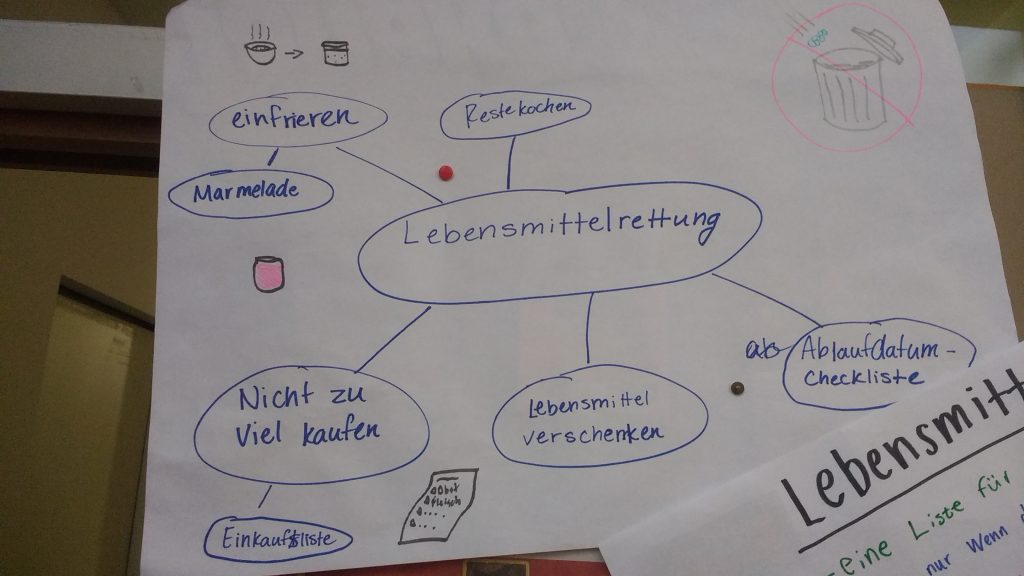 einfrieren
Restekochen
Marmelade
Lebensmittelrettung
Ablaufdatum-
checkliste
Nicht zu
viel kaufen
Lebensmittel
verschenken
Einkaufsliste
Obst
Fleisch
Lebensmitt
-eine Liste für
nur Wenn